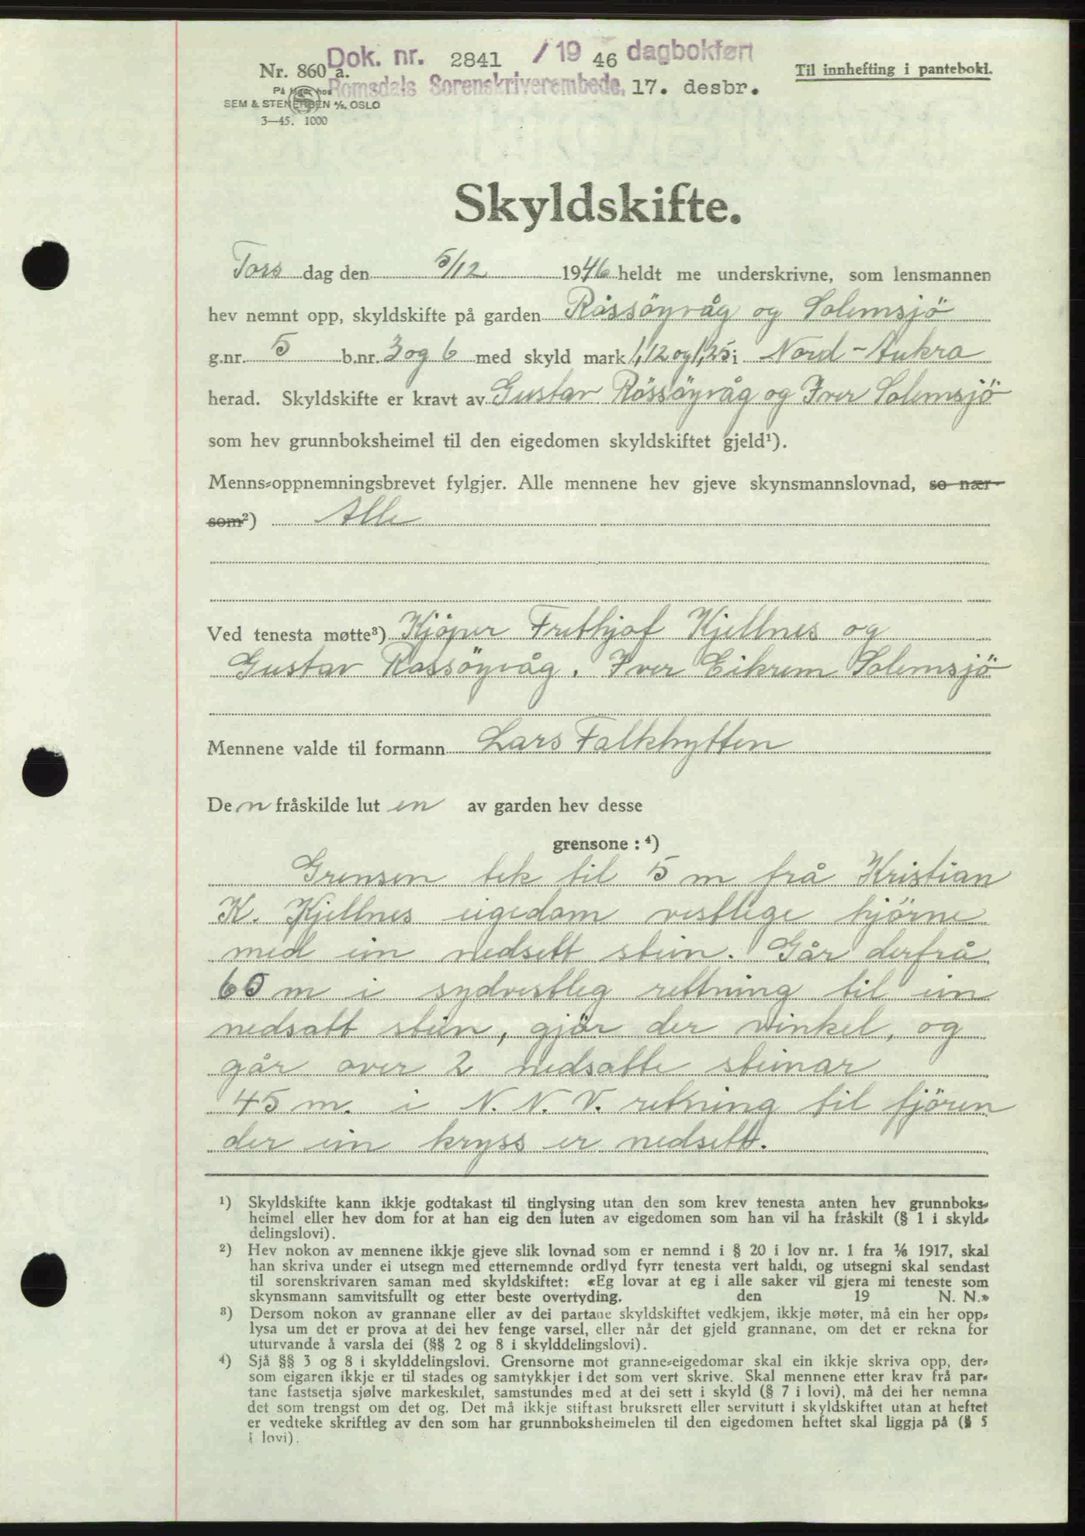 Dok. nr. 2841 / 19 46 dagbokført
Nr. 860 a.
Til innhefting i pantebok.
Romsdals Sorenskriverembede, 17. desbr.
SEM & STENERSEN A/S, OSLO
3—45. 1000
Skyldskifte.
Tors dag den 5/12 1946 heldt me underskrivne, som lensmannen
hev nemnt opp, skyldskifte på garden Rössöyvåg og Solemsjö
g.nr. 5 b.nr. 3 og 6 med skyld mark 1,12 og 1,25 i Nord-Aukra
herad. Skyldskifte er kravt av Gustav Rössöyvåg og Iver Solemsjö
som hev grunnboksheimel til den eigedomen skyldskiftet gjeld¹).
Menns-oppnemningsbrevet fylgjer. Alle mennene hev gjeve skynsmannslovnad, so nær-
som²) Alle
Ved tenesta møtte³) Kjöper Frithjof Kjellnes og
Gustav Rossöyvåg. Iver Eikrem Solemsjö
Mennene valde til formann Lars Falkhytten
Den fråskilde lut en av garden hev desse
grensone : ⁴)
Grensen tek til 5 m frå Kristian
K. Kjellnes eigedom vestlege hjörne
med ein nedsett stein. Går derfrå
60 m i sydvestleg rettning til ein
nedsatt stein, gjör der vinkel, og
går over 2 nedsatte steinar
45 m. i N. N. V. retning til fjören
der ein kryss er nedsett.
¹) Skyldskifte kann ikkje godtakast til tinglysing utan den som krev tenesta anten hev grunnboks-
heimel eller hev dom for at han eig den luten av eigedomen som han vil ha fråskilt (§ 1 i skyld-
delingslovi).
²) Hev nokon av mennene ikkje gjeve slik lovnad som er nemnd i § 20 i lov nr. 1 fra 1/6 1917, skal
han skriva under ei utsegn med etternemnde ordlyd fyrr tenesta vert haldi, og utsegni skal sendast
til sorenskrivaren saman med skyldskiftet: «Eg lovar at eg i alle saker vil gjera mi teneste som
skynsmann samvitsfullt og etter beste overtyding. den 19 N. N.»
³) Dersom nokon av grannane eller av dei partane skyldskiftet vedkjem, ikkje møter, må ein her opp-
lysa um det er prova at dei hev fenge varsel, eller når det gjeld grannane, om det er rekna for
uturvande å varsla dei (§§ 2 og 8 i skylddelingslovi).
⁴) Sjå §§ 3 og 8 i skylddelingslovi. Grensorne mot granne-eigedomar skal ein ikkje skriva opp, der-
som eigaren ikkje er til stades og samtykkjer i det som vert skrive. Skal mennene etter krav frå par-
tane fastsetja sjølve markeskilet, samstundes med at dei sett i skyld (§ 7 i lovi), må dei her nemna
det som trengst om det og. Det må ikkje stiftast bruksrett eller servitutt i skyldskiftet utan at heftet
er vedteke skriftleg av den som har grunnboksheimelen til den eigedomen heftet skal liggja på (§ 5
i lovi).